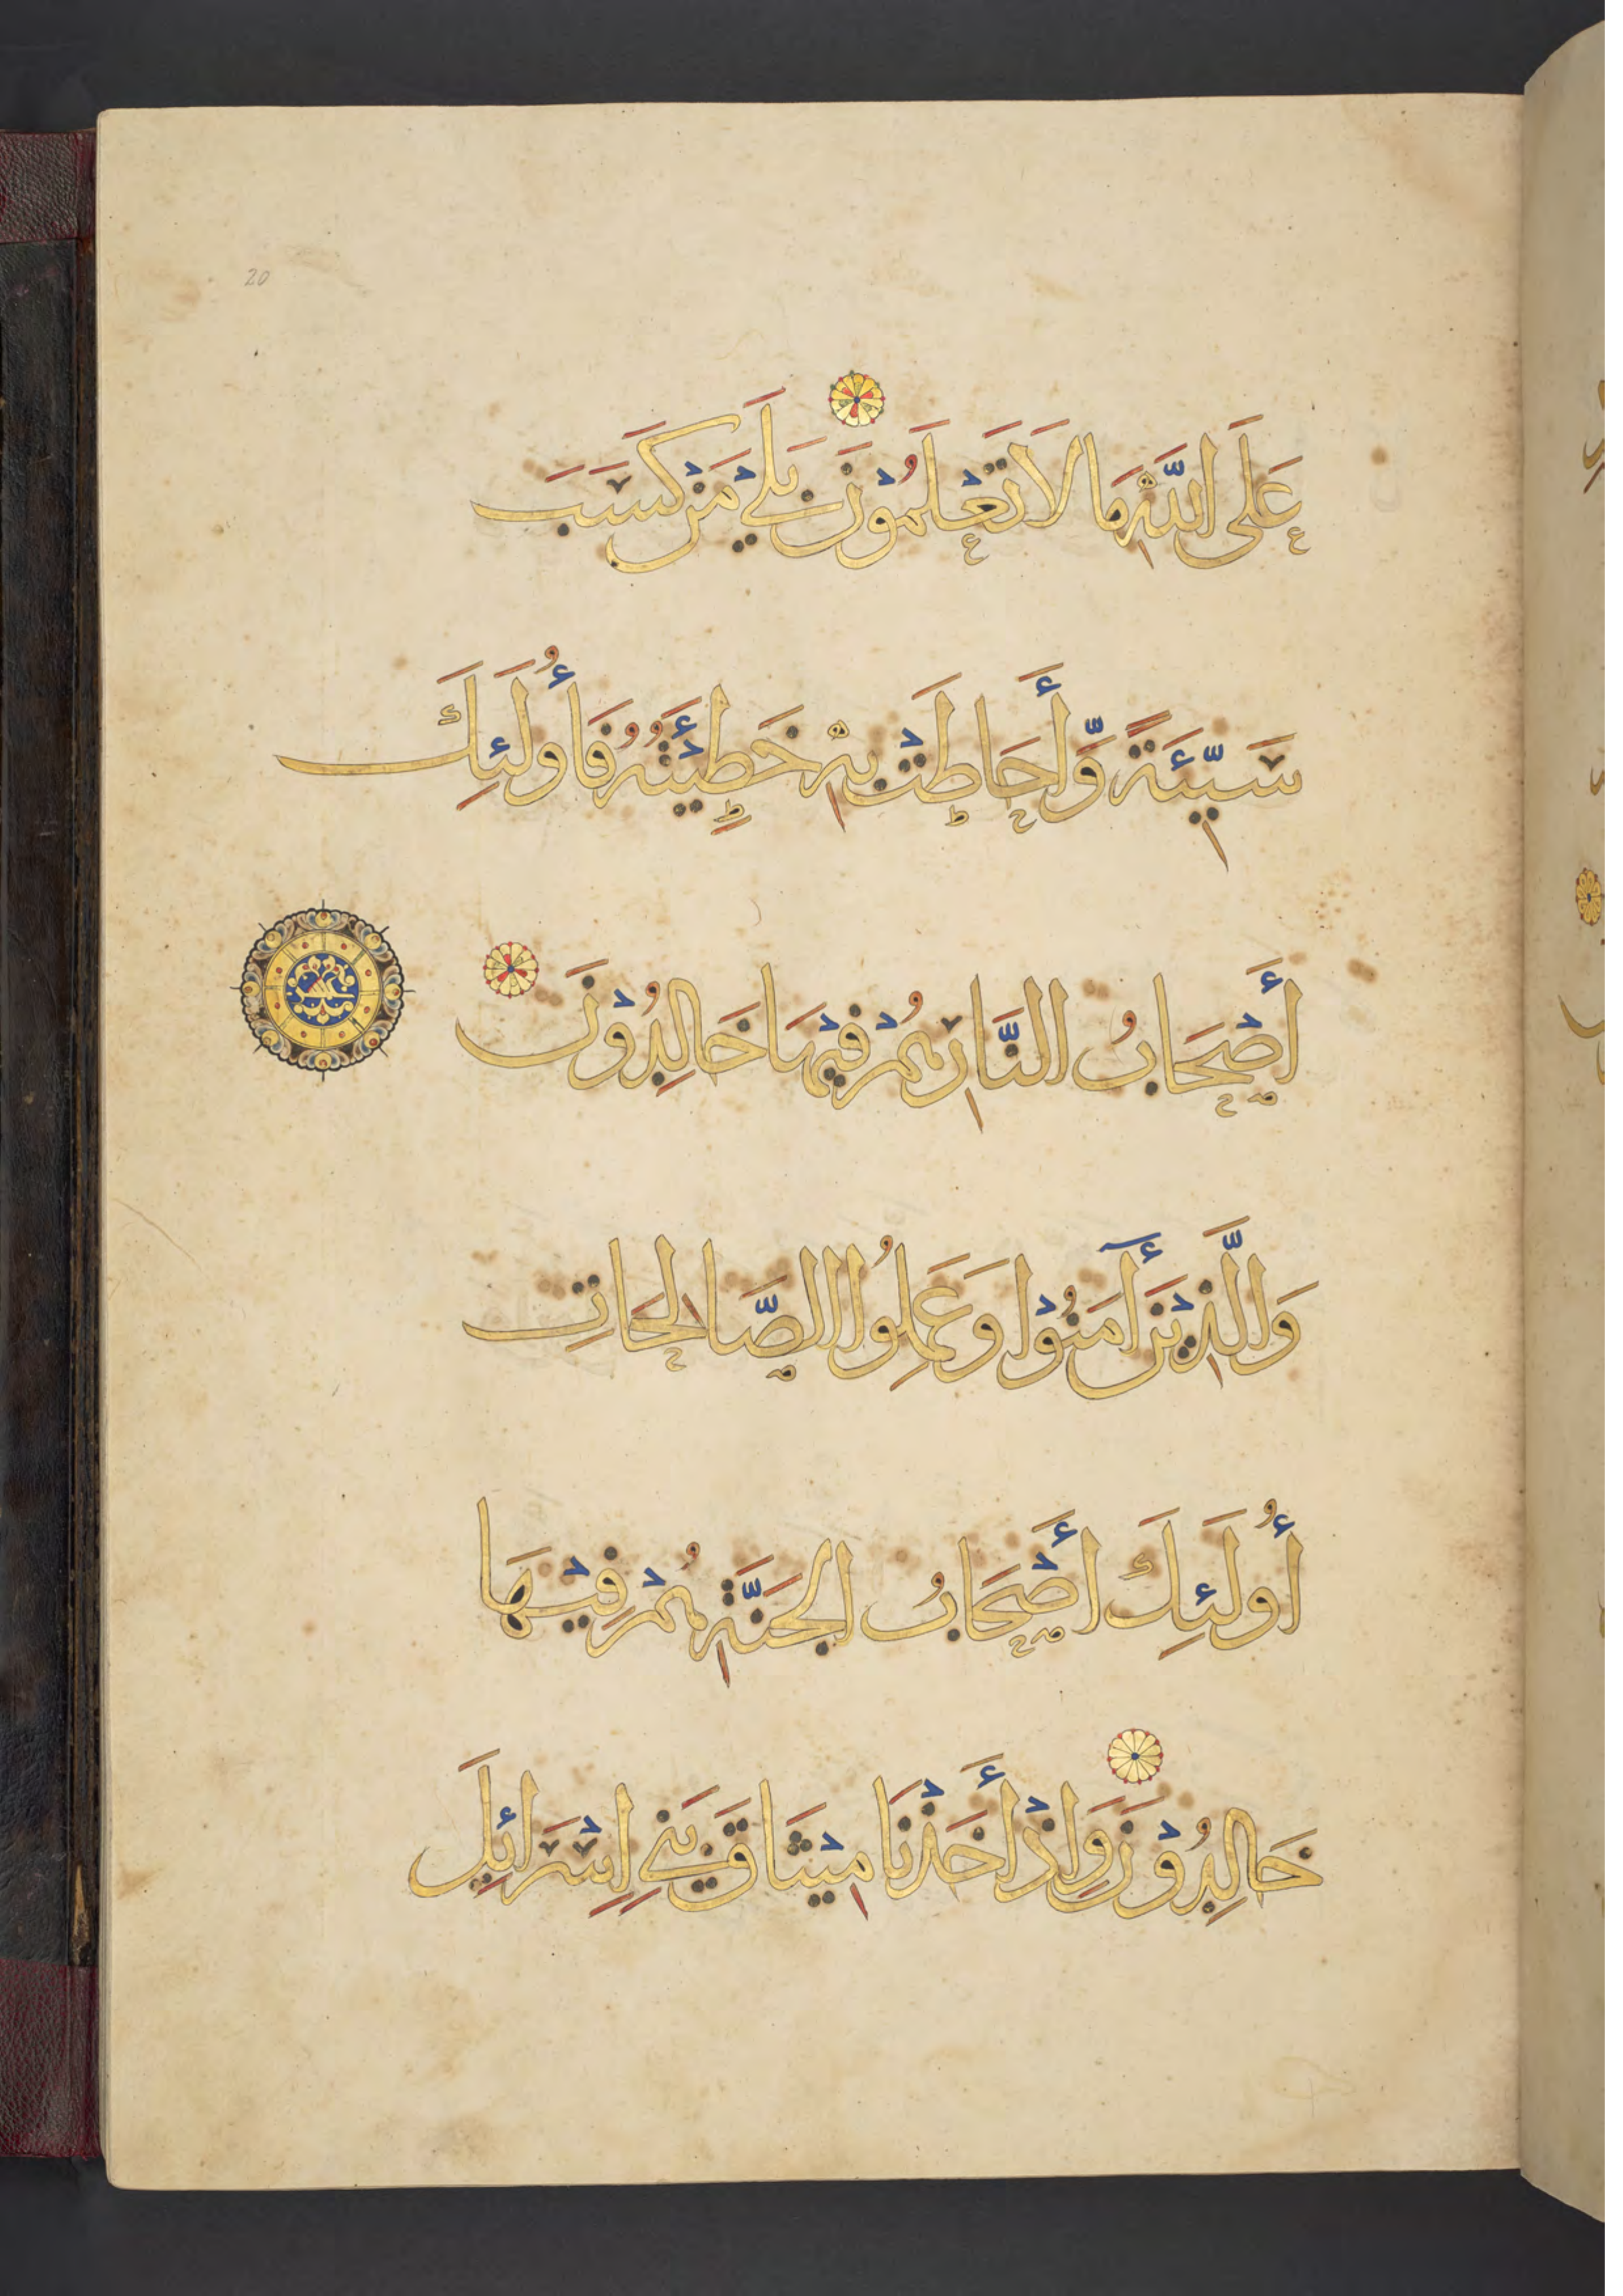 20
عَلَى اللّٰهِ مَا لَا تَعْلَمُوْنَ بَلَىْ مَنْ كَسَبَ
سَيِّئَةً وَّأَحَاطَتْ بِهٖ خَطِيْئَتُهُ فَأُولَئِكَ
أَصْحَابُ النَّارِ هُمْ فِيْهَا خَالِدُوْنَ
وَالَّذِيْنَ أٓمَنُوْا وَعَمِلُوا الصَّالِحَاتِ
أُولَئِكَ أَصْحَابُ الْجَنَّةِ هُمْ فِيْهَا
خَالِدُوْنَ وَإِذْ أَخَذْنَا مِيْثَاقَ بَنِي إِسْرَائِلَ